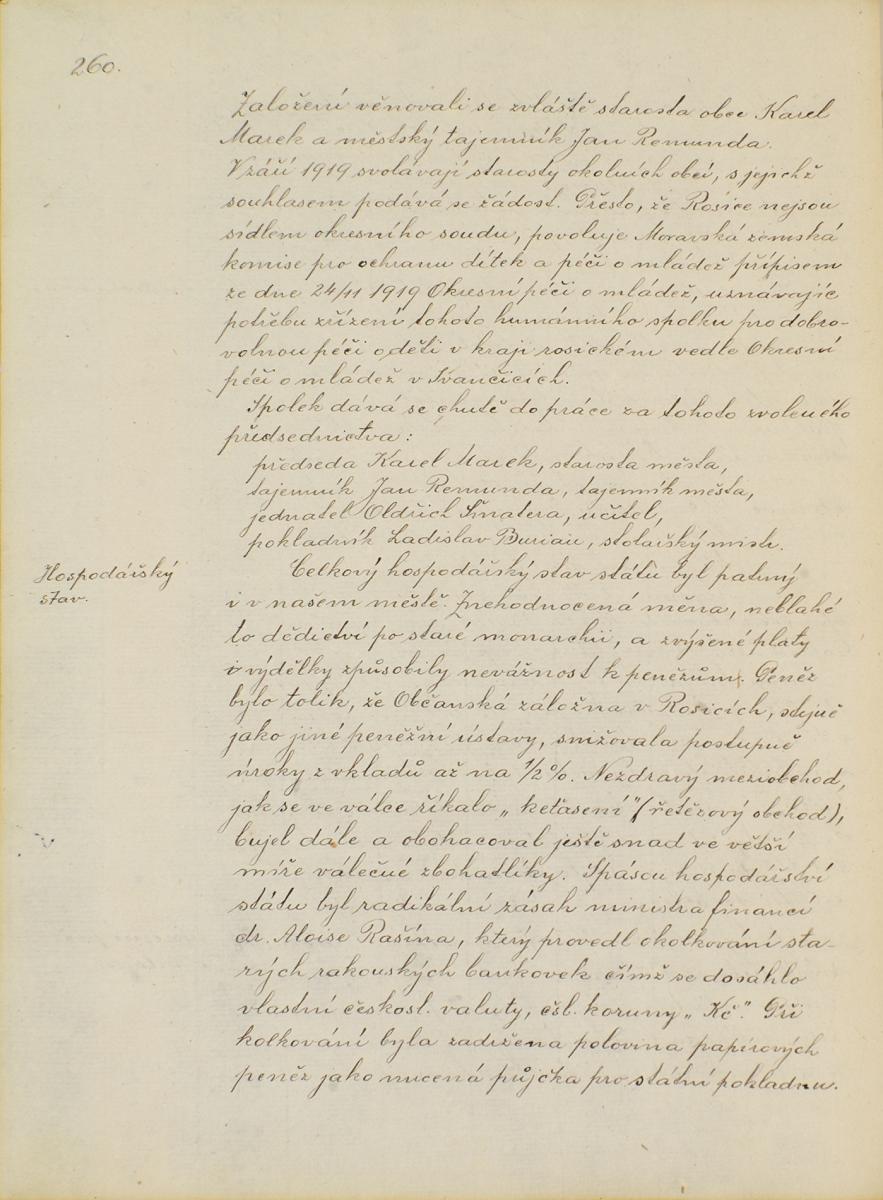 260.
Založení věnovali se zvláště starosta obce Karel
Marek a městský tajemník Jan Remunda.
V září 1919 svolávají starosty okolních obcí, s jejichž
souhlasem podává se žádost. Přesto, že Rosice nejsou
sídlem okresního soudu, povoluje Moravská zemská
komise pro ochranu dítek a péči o mládež přípisem
ze dne 24/11 1919 Okresní péči o mládež, uznávajíc
potřebu zřízení tohoto humánního spolku pro dobro-
volnou péči o děti v kraji rosickém vedle Okresní
péči o mládež v Ivančicích.
Spolek dává se chutě do práce za tohoto zvoleného
předsednictva:
předseda Karel Marek, starosta města,
tajemník Jan Remunda, tajemník města,
jednatel Oldřich Šmatera, učitel,
pokladník Ladislav Burian, stolařský mistr.
Hospodářský
stav.
Celkový hospodářský stav státu byl patrný
i v našem městě. Znehodnocená měna, neblahé
to dědictví po staré monarchii, a zvýšené platy
i výdělky způsobily nevážnost k penězům. Peněz
bylo tolik, že Občanská záložna v Rosicích, stejně
jako jiné peněžní ústavy, snižovala postupně
úroky z vkladů až na ½%. Nezdravý meziobchod,
jak se ve válce říkalo „keťasení" (řetězový obchod),
bujel dále a obohacoval ještě snad ve větší
míře válečné zbohatlíky. Spásou hospodářství
státu byl radikální zásah ministra financí
dr. Aloise Rašína, který provedl okolkování sta-
rých rakouských bankovek čímž se dosáhlo
vlastní českosl. valuty, čsl. koruny „Kč". Při
kolkování byla zadržena polovina papírových
peněz jako nucená půjčka pro státní pokladnu.